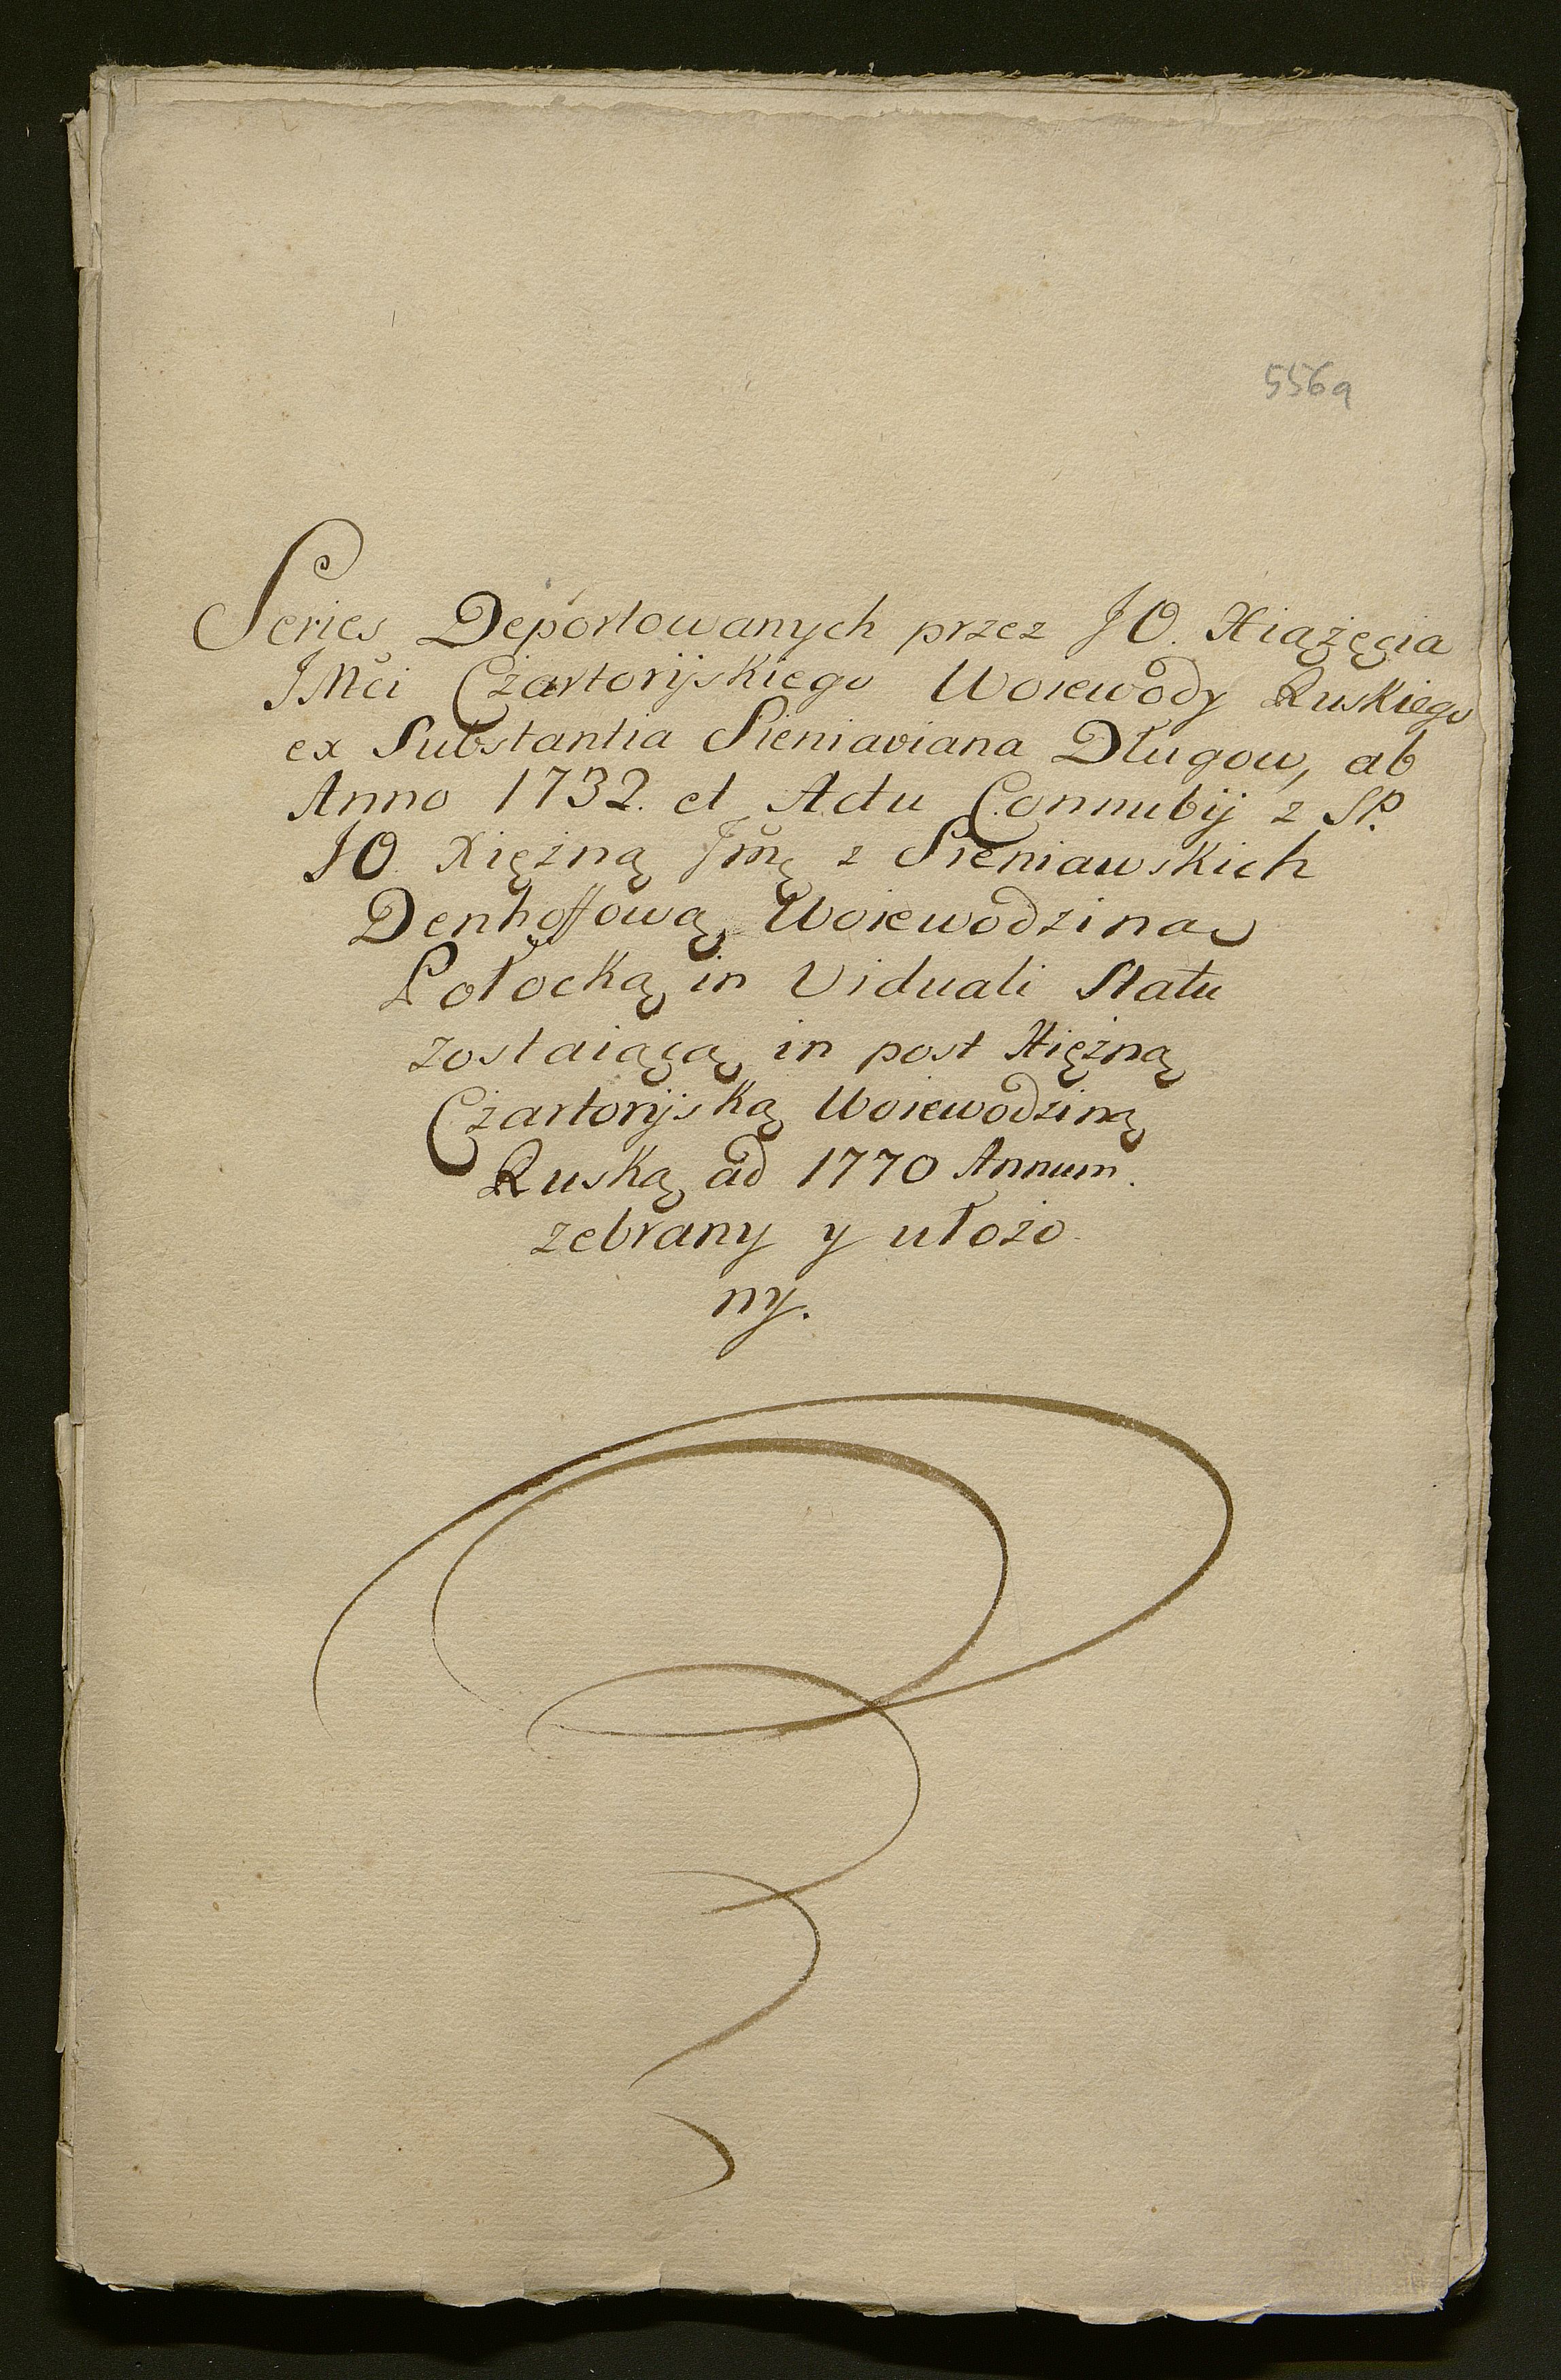 556a
Series Deportowanych przez JO. Xiążęcia
JMći Czartoryskiego Woiewody Ruskiego
ex Substantia Sieniaviana Długow, ab
Anno 1732. et Actu Connubij z SP.
JO Xiężną Jmą z Sieniawskich
Denhoffową Woiewodziną
Połocką in Viduali Statu
zostaiącą in post Xiężną
Czartoryską Woiewodziną
Ruską ad 1770 Annum.
zebrany y ułożo
ny.